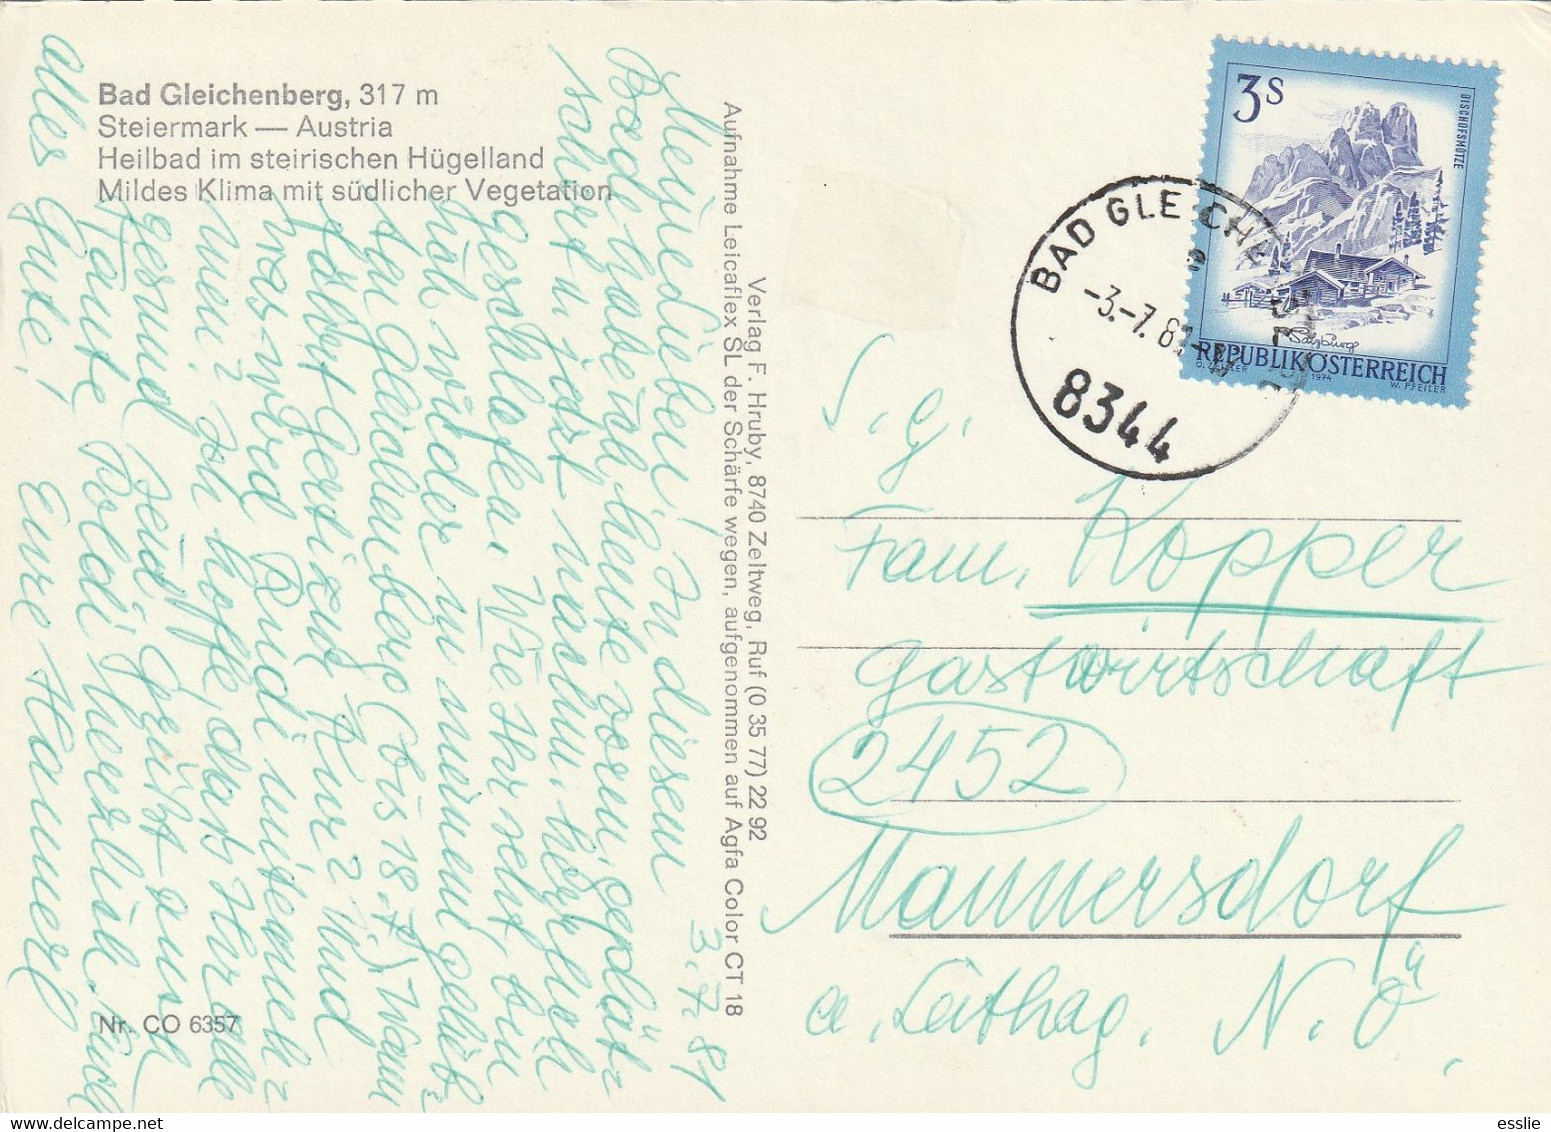 Bad Gleichenberg, 317 m
Steiermark — Austria
Heilbad im steirischen Hügelland
Mildes Klima mit südlicher Vegetation
Nr. CO 6357
3. 7. 81
Meine Lieben! In diesen
Bade habe ich heute vorm. geplät-
schert u. jetzt nachm. herrlich
geschlafen. Wie Ihr seht, bin
ich wieder in meinem geliebt
Bad Gleichenberg (bis 18. 7.) Wann
fährt Gerti zur Kur? Und
was wird Rudi unterneh-
men? Ich hoffe, daß Ihr alle
gesund seid, grüßt auch
Tante Poldi herzlich und
alles Gute! Eure
Verlag F. Hruby, 8740 Zeltweg, Ruf (0 35 77) 22 92
Aufnahme Leicaflex SL der Schärfe wegen, aufgenommen auf Agfa Color CT 18
3 S
BISCHOFSMÜTZE
Salzburg
REPUBLIK ÖSTERREICH
1974
W. PFEILER
BAD GLEICHE
-3.-7.8
8344
S. g.
Fam. Kopper
Gastwirtschaft
2452
Mannersdorf
a. Leithag. N. Ö.
esslie
delcampe.net